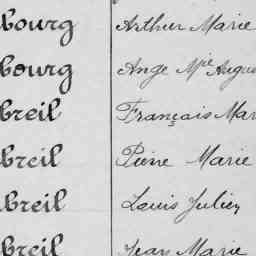 bourg Arthur Marie
bourg Ange Mie Augus
breil François Mar
breil Pierre Marie
breil Louis Julien
breil Jean Marie